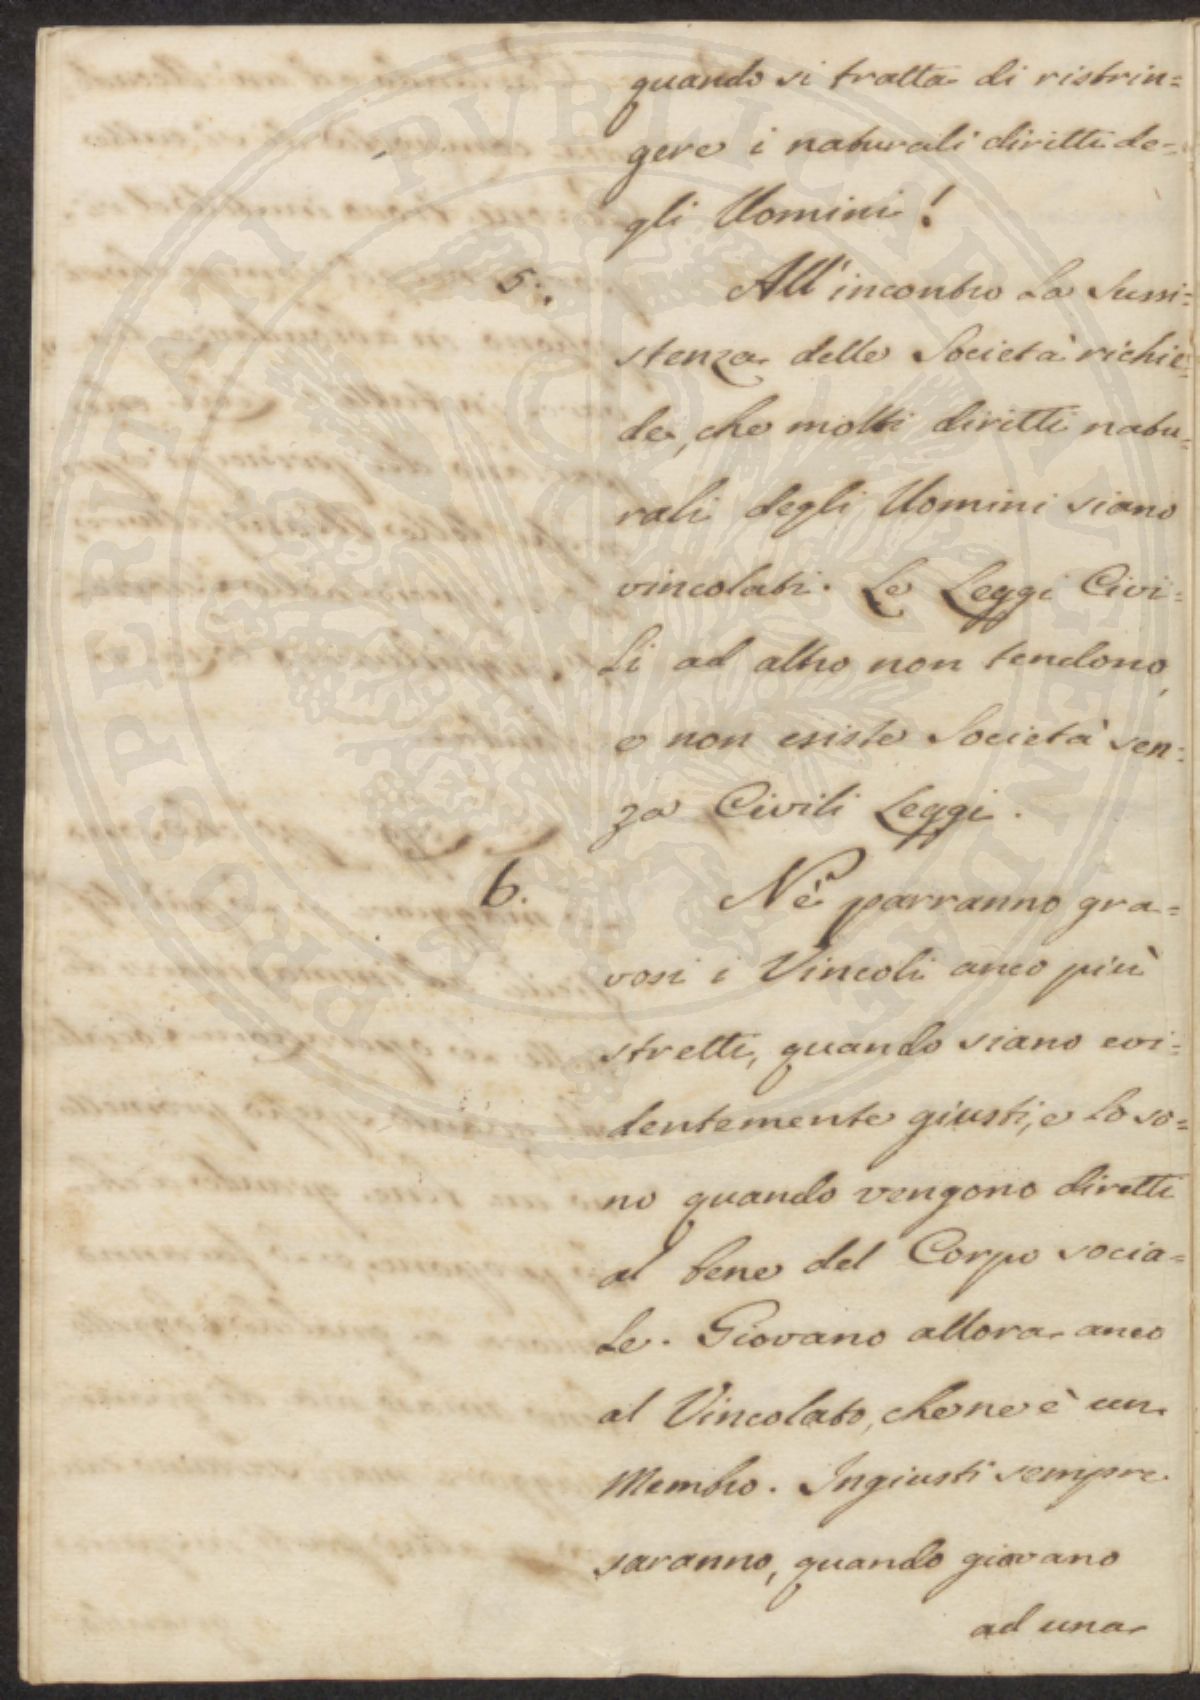 quando si tratta di ristrin=
gere i naturali diritti de=
gli Uomini!
5. All'incontro La Sussi=
stenza delle Società richie=
de, che molti diritti natu=
rali degli Uomini siano
vincolati. Le Leggi Civi=
Li ad altro non tendono,
e non esiste Società sen=
za Civili Leggi.
6. Nè parranno gra=
vosi i Vincoli anco più
stretti, quando siano evi=
dentemente giusti, e Lo so=
no quando vengono diretti
al bene del Corpo socia=
Le. Giovano allora anco
al Vincolato, che ne è un
Membro. Ingiusti sempre
saranno, quando giovano
ad una
PROSPERITATI PUBLICAE AUGENDAE